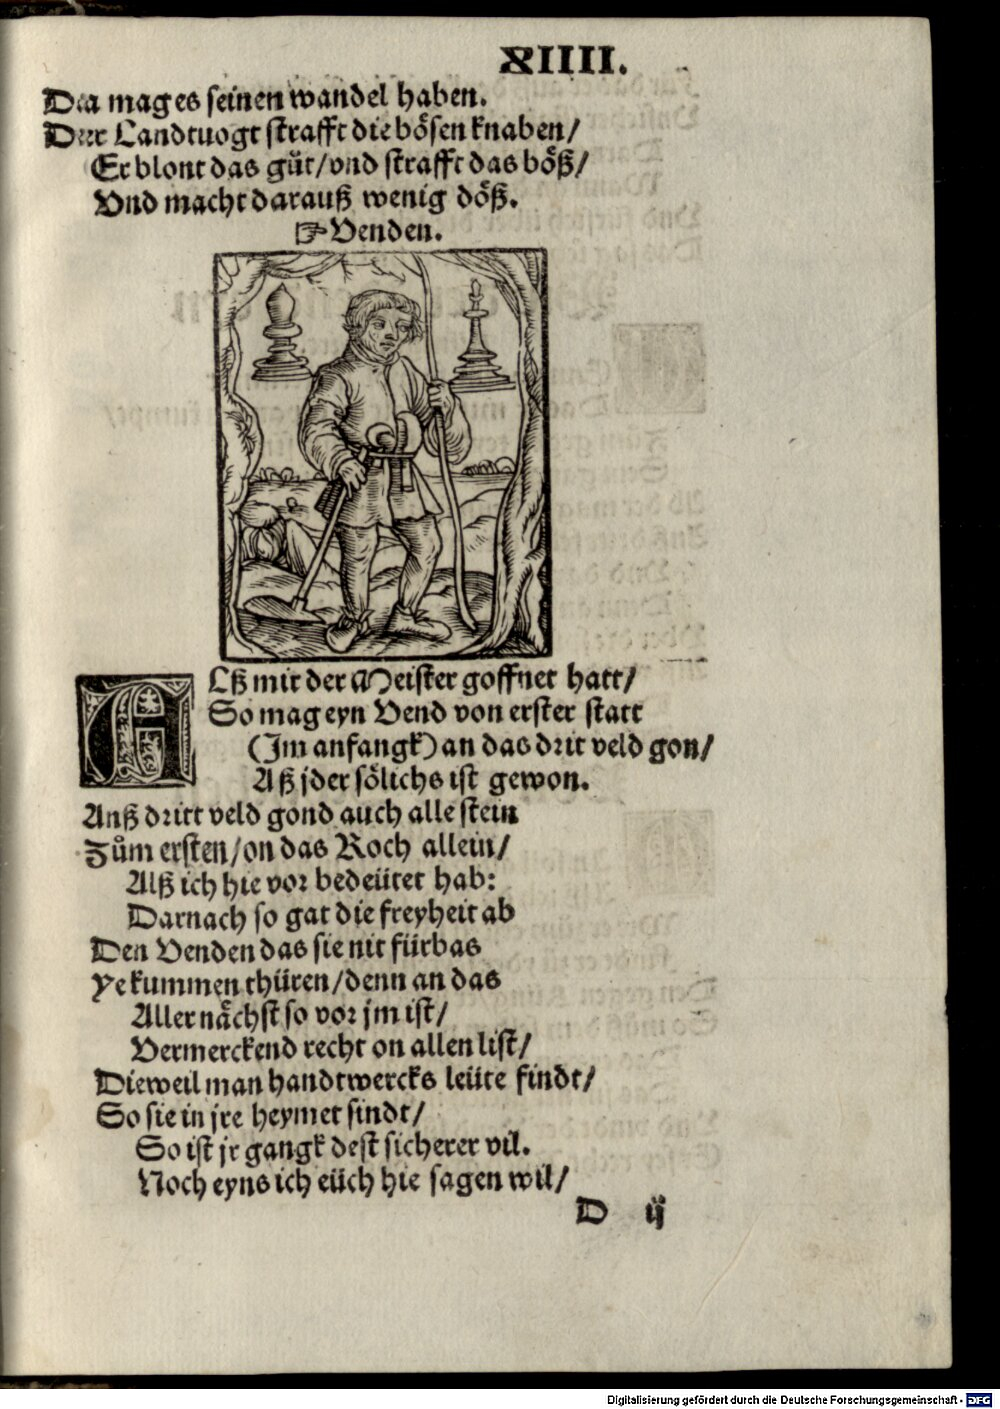 XIIII.
Da mag es seinen wandel haben.
Der Landtuogt strafft die bösen knaben/
Er blont das gůt/vnd strafft das böß/
Vnd macht darauß wenig döß.
☞Venden.
ALß mir der Meister goffnet hatt/
So mag eyn Vend von erster statt
(Im anfangk) an das drit veld gon/
Aß jder sölichs ist gewon.
Anß dritt veld gond auch alle stein
Zům ersten/on das Roch allein/
Alß ich hie vor bedeütet hab:
Darnach so gat die freyheit ab
Den Venden das sie nit fürbas
Ye kummen thüren/denn an das
Aller nächst so vor jm ist/
Vermerckend recht on allen list/
Dieweil man handtwercks leüte findt/
So sie in jre heymet sindt/
So ist jr gangk dest sicherer vil.
Noch eyns ich eüch hie sagen wil/
D ij
Digitalisierung gefördert durch die Deutsche Forschungsgemeinschaft - DFG